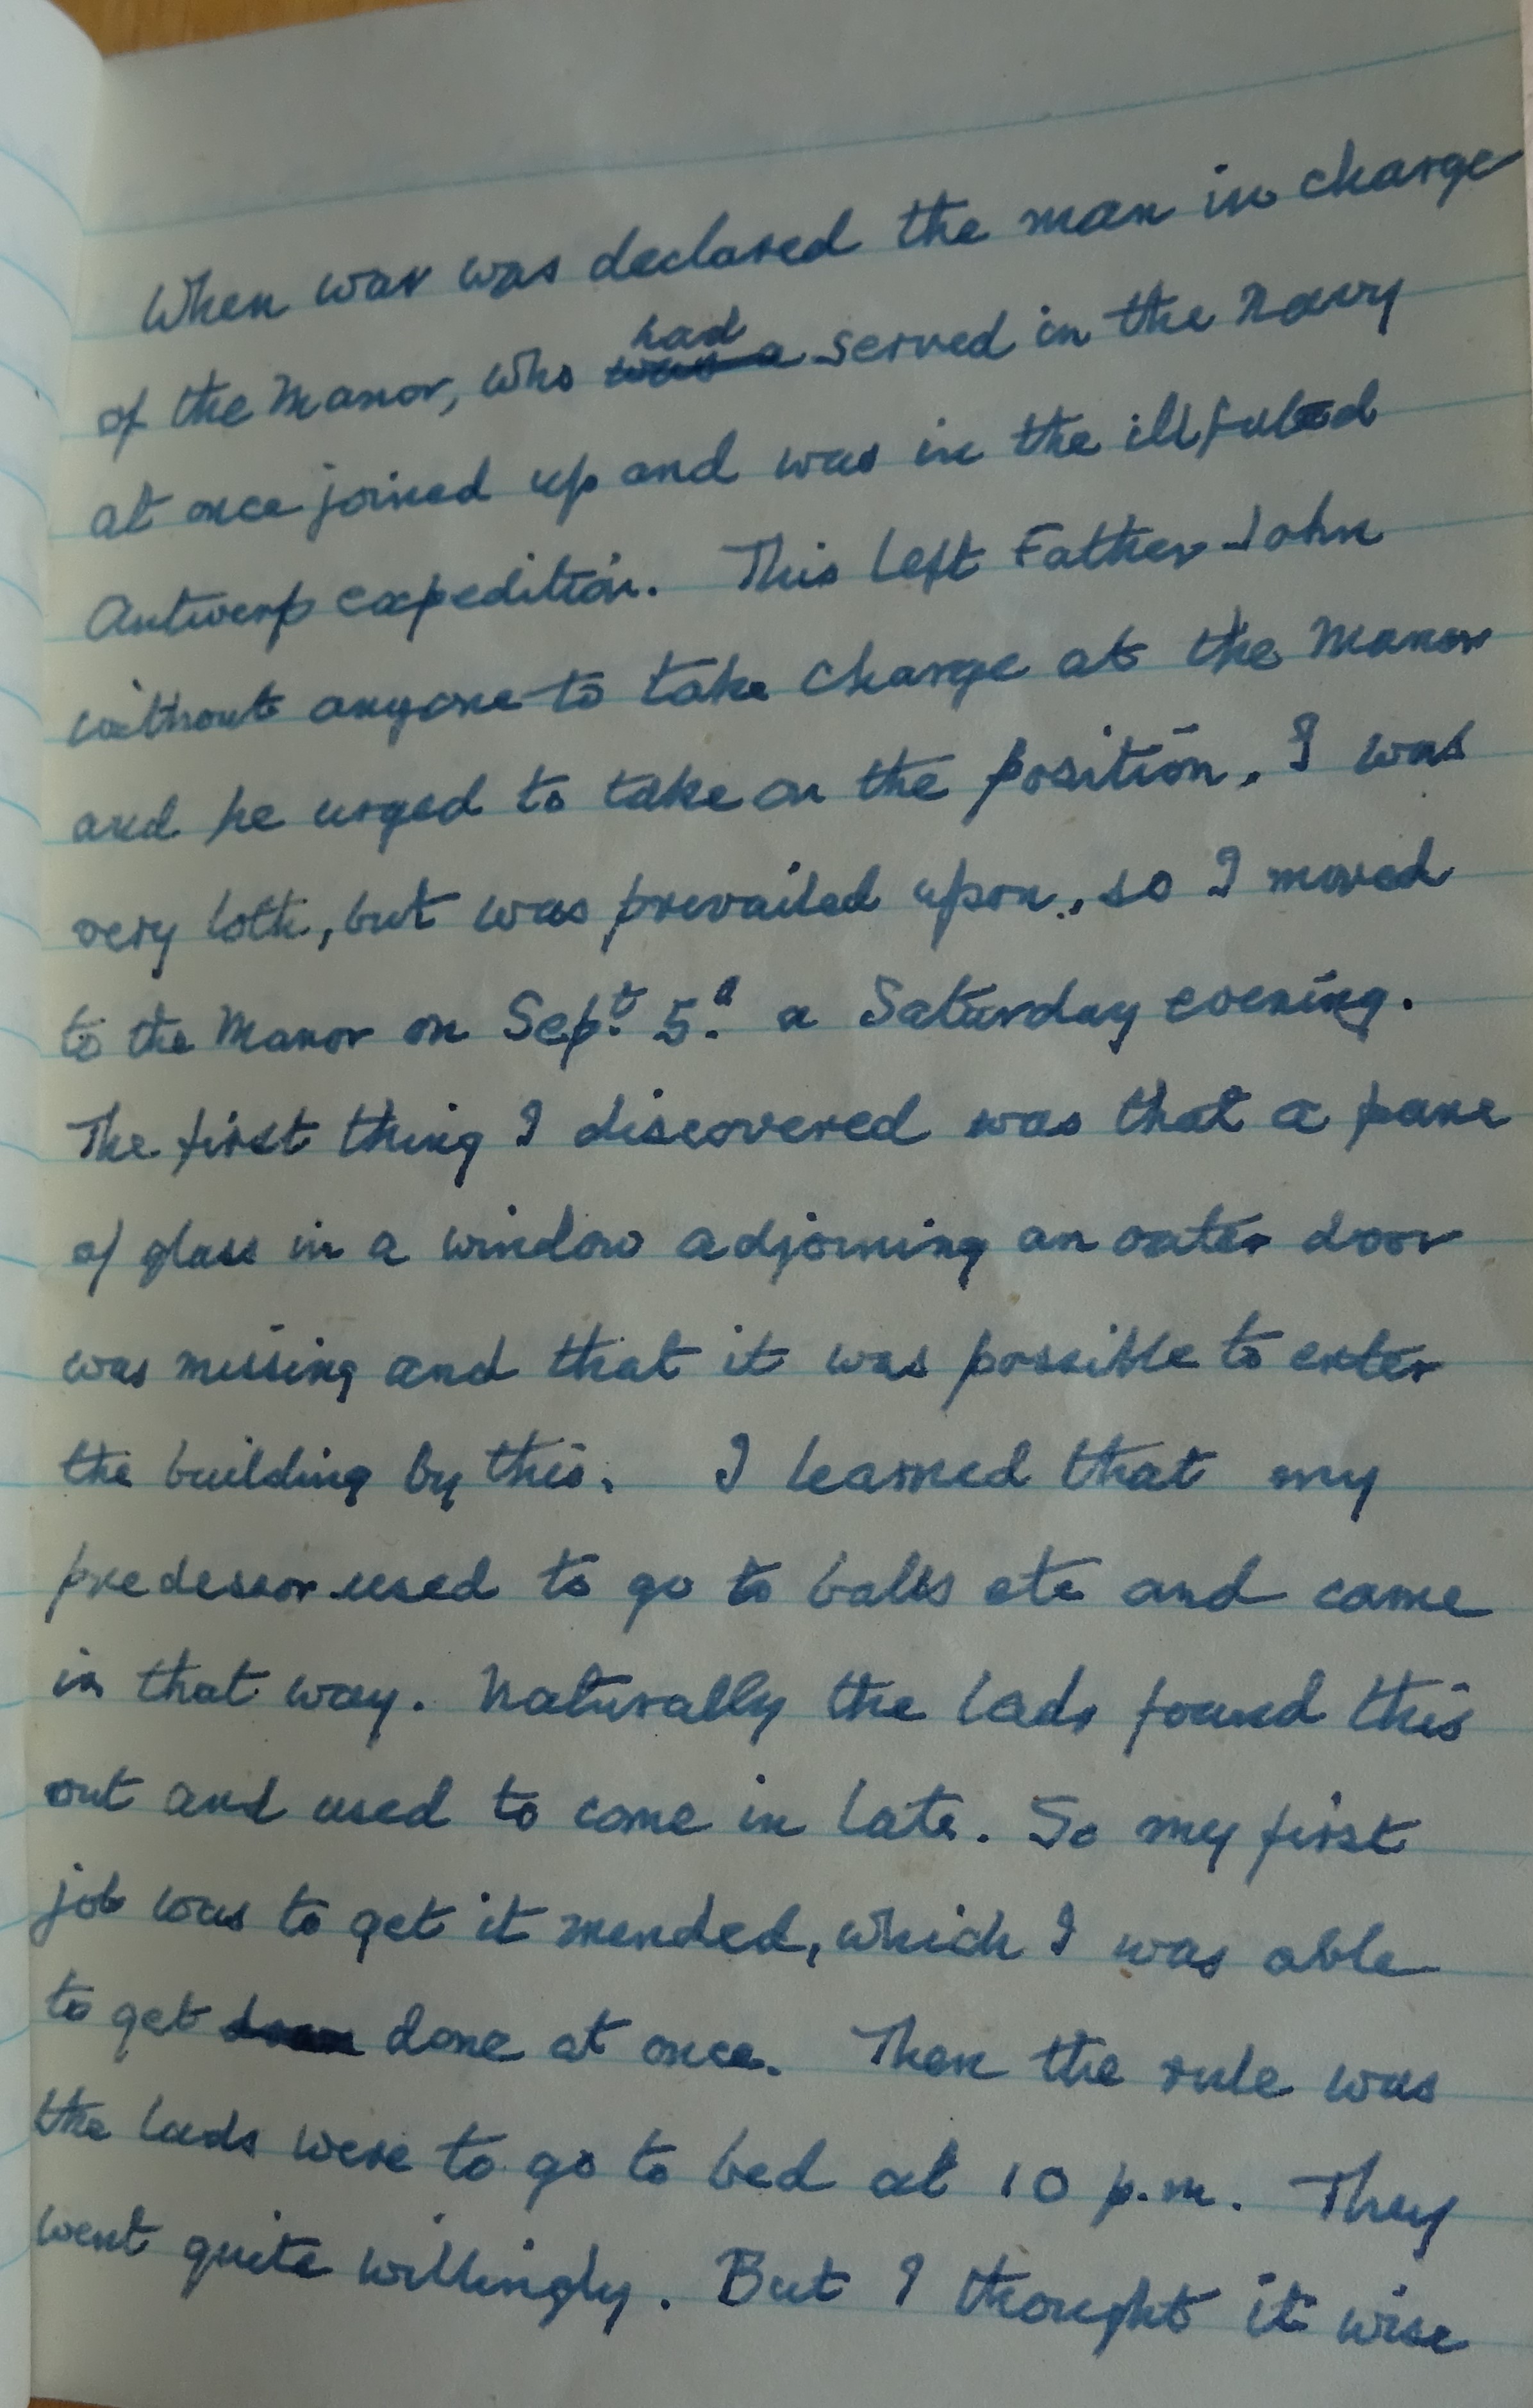 When war was declared the man in charge
of the Manor, who had was a served in the Navy
at once joined up and was in the illfated
Antwerp expedition. This left Father John
without anyone to take charge at the Manor
and he urged to take on the position. I was
very loth, but was prevailed upon, so I moved
to the Manor on Sept. 5.a a Saturday evening.
The first thing I discovered was that a pane
of glass in a window adjoining an outer door
was missing and that it was possible to enter
the building by this. I learned that my
predessor used to go to balls etc and came
in that way. Naturally the lads found this
out and used to come in late. So my first
job was to get it mended, which I was able
to get done at once. Then the rule was
the lads were to go to bed at 10 p.m. They
went quite willingly. But I thought it wise